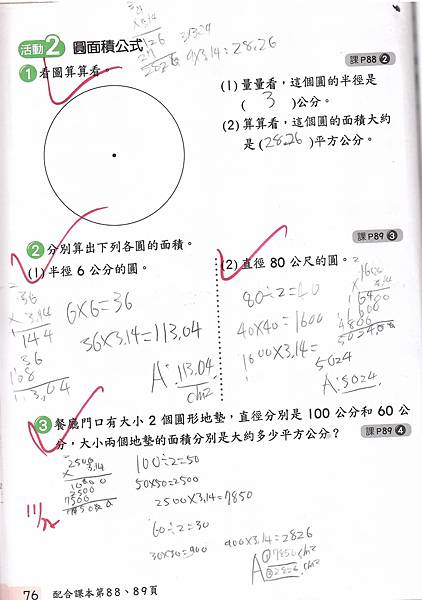 活動2 圓面積公式
9×3.14=28.26
課P88 2
1 看圖算算看。
(1) 量量看，這個圓的半徑是
( 3 )公分。
(2) 算算看，這個圓的面積大約
是(28.26)平方公分。
課P89 3
2 分別算出下列各圓的面積。
(1) 半徑 6 公分的圓。
36
× 3.14
144
36
108
113.04
6×6=36
36×3.14=113.04
A:113.04 cm2
(2) 直徑 80 公尺的圓。
80÷2=40
40×40=1600
1600×3.14=
5024
A:5024
1600
× 3.14
3 餐廳門口有大小 2 個圓形地墊，直徑分別是 100 公分和 60 公
分，大小兩個地墊的面積分別是大約多少平方公分？
課P89 4
2500
× 3.14
10000
2500
7500
100÷2=50
50×50=2500
2500×3.14=7850
60÷2=30
30×30=900
900×3.14=2826
A ① 7850 cm2
② 2826 cm2
76 配合課本第88、89頁